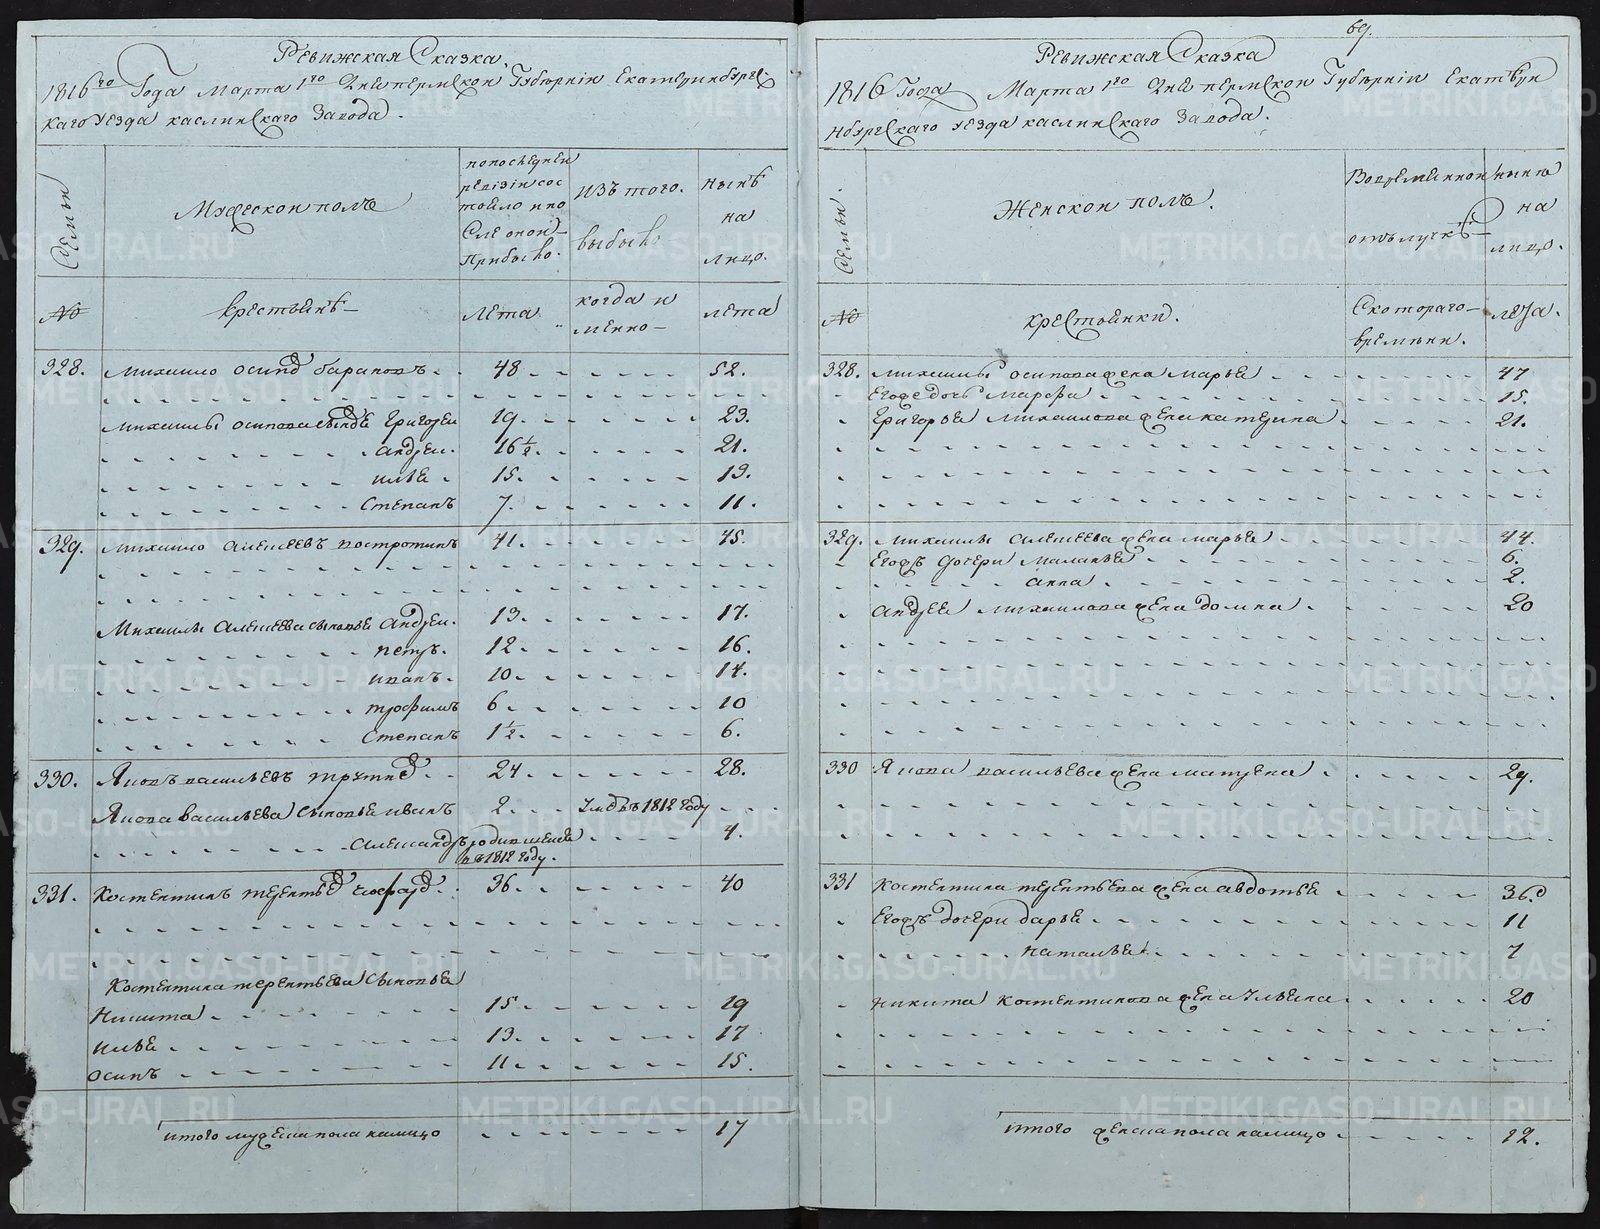 Ревижская Сказка
1816го Года Марта 1го Дня пермскои Губернiи Екатеринбургс-
каго уезда каслинскаго Завода.
Семьи
Мужескои полъ
попоследнеи
ревiзiи сос
тояло ипо
Сле онои
Прибыло.
изъ того.
выбыло
ныне
на
лицо.
№
крестьяне
лета
когда и
менно
лета
328. михаило осипов барановъ 48 52.
михаилы осипова сынове Григореи 19. 23.
андреи. 16 1/2. 21.
илья 15. 19.
Степанъ 7. 11.
329. михаило алексеевъ востротинъ 41. 45.
Михаилы алексеева сыновья андреи. 13. 17.
петръ. 12 16.
иванъ. 10 14.
трофимъ 6 10
Степанъ 1 1/2. 6.
330. Яковъ васильевъ 24 28.
Якова васильева сыновья иванъ 2. умре въ 1812 году
александръ родившейся 4.
въ 1812 году.
331. Костентинъ терентьев 36. 40
Костентина терентьева Сыновья
никита 15. 19
илья 13. 17
осипъ 11 15.
итого мужеска пола налицо 17
69.
Ревижская Сказка
1816 Года Марта 1го Дня пермскои Губернiи Екатери
нбургскаго уезда каслинскаго Завода.
Семьи.
Женскои полъ.
Вовременнои
отълучке
ныне
на
лицо.
№
крестьянки.
Скотораго
времени.
лета.
328. михаилы осипова жена марья 47
Егоже дочь марфа 15.
Григорья михаилова жена катерина 21.
329. михаилы алексеева жена марья 44.
Егожъ дочери маланья 6.
анна 2.
андрея михаилова жена домна 20
330 Якова васильева жена матрена 29.
331 костентина терентьева жена авдотья 36.
Егожъ дочери дарья 11
наталья 7
никита костентинова жена ульяна 20
итого женска пола налицо 12.
METRIKI.GASO-URAL.RU